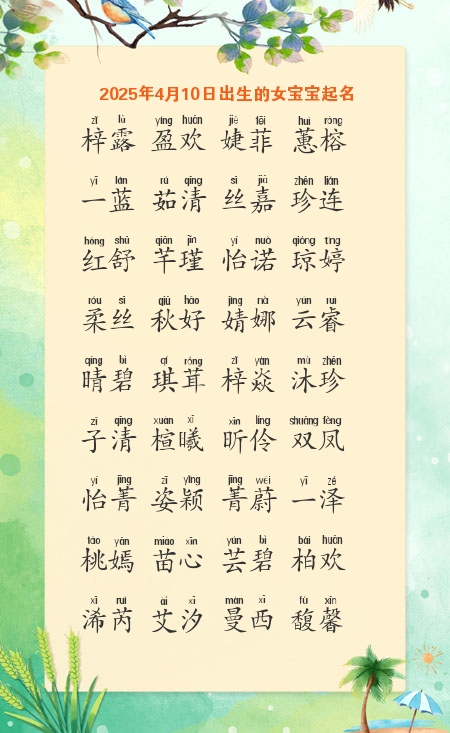 2025年4月10日出生的女宝宝起名
zǐ lù yíng huān jié fēi huì róng
梓露 盈欢 婕菲 蕙榕
yī lán rú qīng sī jiā zhēn lián
一蓝 茹清 丝嘉 珍连
hóng shū qiān jǐn yí nuò qióng tíng
红舒 芊瑾 怡诺 琼婷
róu sī qiū hǎo jìng nà yún ruì
柔丝 秋好 婧娜 云睿
qíng bì qí róng zǐ yàn mù zhēn
晴碧 琪茸 梓焱 沐珍
zǐ qīng xuān xī xīn líng shuāng fèng
子清 楦曦 昕伶 双凤
yí jīng zī yǐng jīng wèi yī zé
怡菁 姿颖 菁蔚 一泽
táo yān miáo xīn yún bì bǎi huān
桃嫣 苗心 芸碧 柏欢
xī ruì ài xī màn xī fù xīn
浠芮 艾汐 曼西 馥馨